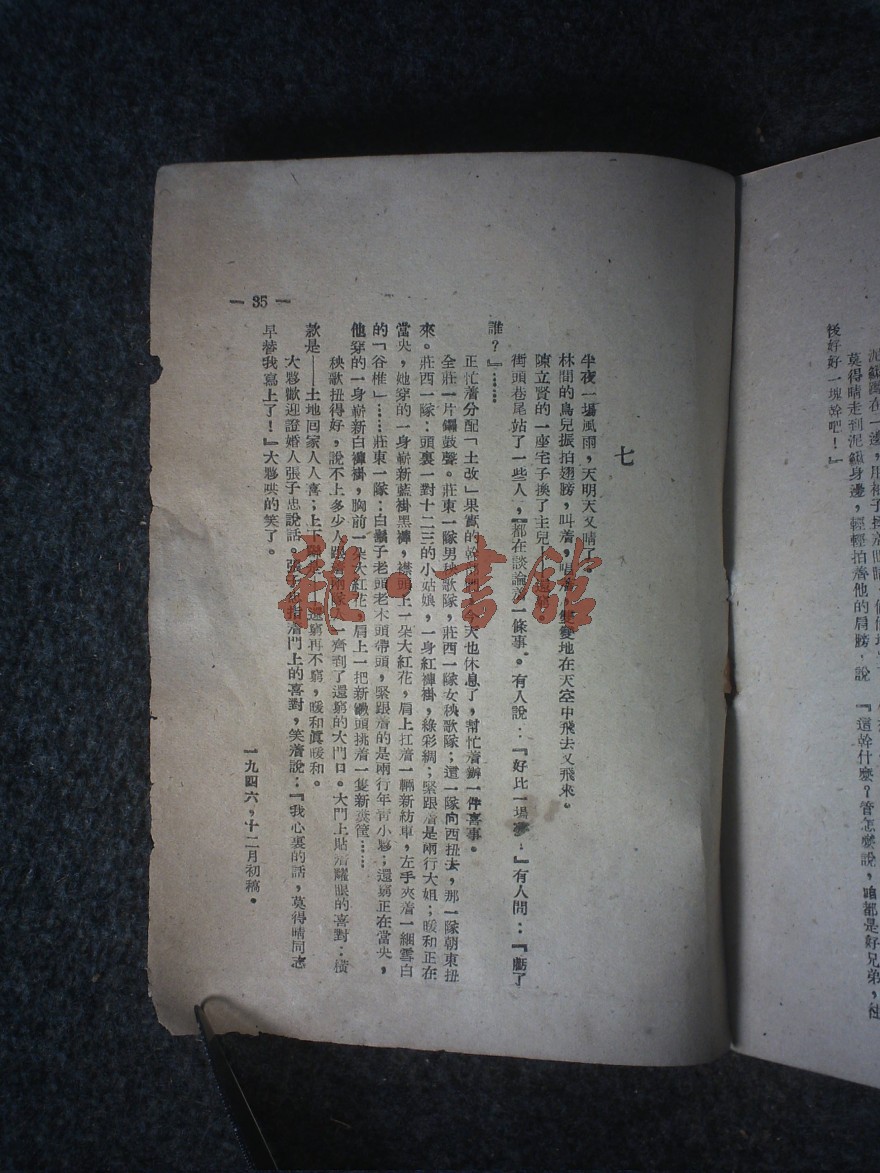 泥鰍蹲在一邊，用袖子
莫得晴走到泥鰍身邊，輕輕拍着他的肩膀，說 『這幹什麼？管怎麼說，咱都是好兄弟，往
後好好一塊幹吧！』
七
半夜一場風雨，天明天又晴了。
林間的鳥兒振拍翅膀，叫着，唱着，雙雙地在天空中飛去又飛來。
陳立賢的一座宅子換了主兒
街頭巷尾站了一些人，都在談論着一條事。有人說：『好比一場 』有人問：『虧了
誰？』……
正忙着分配「土改」果實的幹部 今天也休息了，幫忙着辦一件喜事。
全莊一片鑼鼓聲。莊東一隊男秧歌隊，莊西一隊女秧歌隊；這一隊向西扭去，那一隊朝東扭
來。莊西一隊：頭裏一對十二三的小姑娘，一身紅褲褂，綠彩綢；緊跟着是兩行大姐；暖和正在
當央，她穿的一身嶄新藍褂黑褲，襟頭上一朵大紅花，肩上扛着一輛新紡車，左手夾着一綑雪白
的「谷椎」……莊東一隊：白鬍子老頭老木頭帶頭，緊跟着的是兩行年青小夥；還窮正在當央，
他穿的一身嶄新白褲褂，胸前一朵大紅花，肩上一把新钁頭挑着一隻新糞筐……
秧歌扭得好，說不上多少人跟着 一齊到了還窮的大門口。大門上貼着耀眼的喜對：橫
款是——土地回家人人喜；上下聯是 還窮再不窮，暖和眞暖和。
大夥歡迎證婚人張子忠說話。張子忠指着門上的喜對，笑着說：『我心裏的話，莫得晴同志
早替我寫上了！』大夥哄的笑了。
一九四六，十二月初稿。
— 35 —
雜·書館